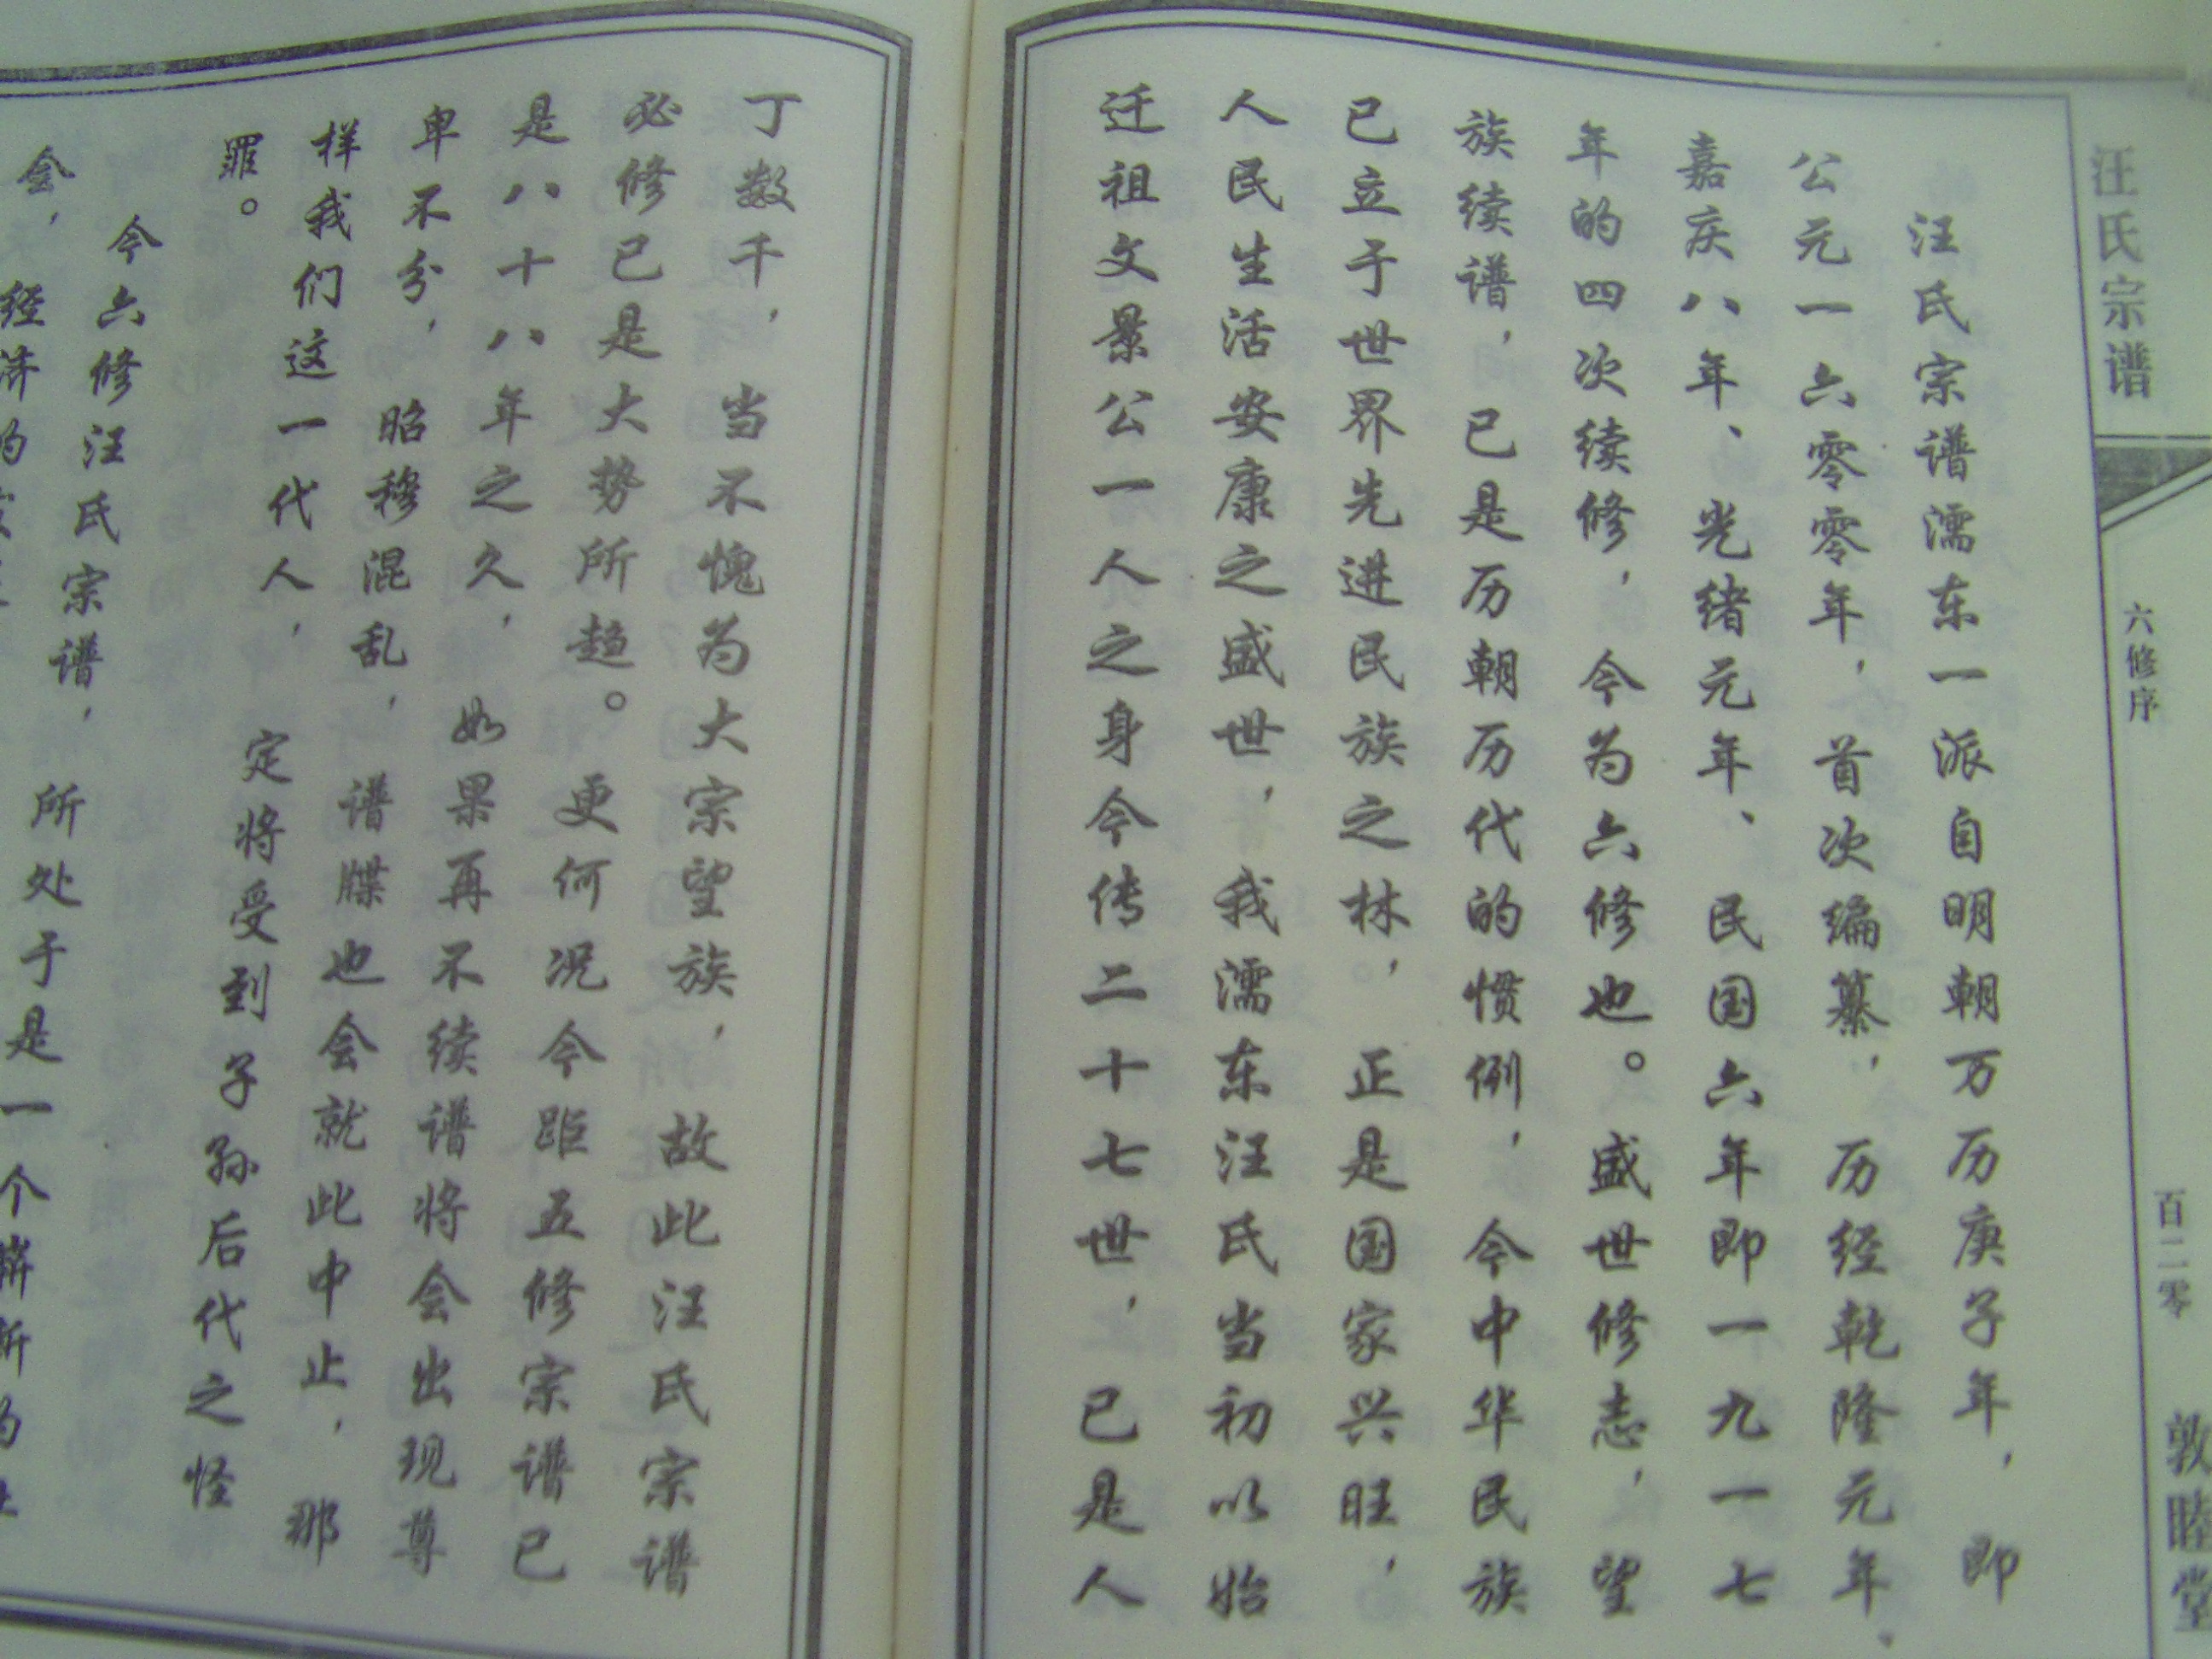 汪氏宗谱
六修序
百二零
敦睦堂
汪氏宗谱濡东一派自明朝万历庚子年，即
公元一六零零年，首次编纂，历经乾隆元年、
嘉庆八年、光绪元年、民国六年即一九一七
年的四次续修，今为六修也。盛世修志，望
族续谱，已是历朝历代的惯例，今中华民族
已立于世界先进民族之林，正是国家兴旺，
人民生活安康之盛世，我濡东汪氏当初以始
迁祖文景公一人之身今传二十七世，已是人
丁数千，当不愧为大宗望族，故此汪氏宗谱
必修已是大势所趋。更何况今距五修宗谱已
是八十八年之久，如果再不续谱将会出现尊
卑不分，昭穆混乱，谱牒也会就此中止，那
样我们这一代人，定将受到子孙后代之怪
罪。
今六修汪氏宗谱，所处于是一个崭新的社
会，经济的